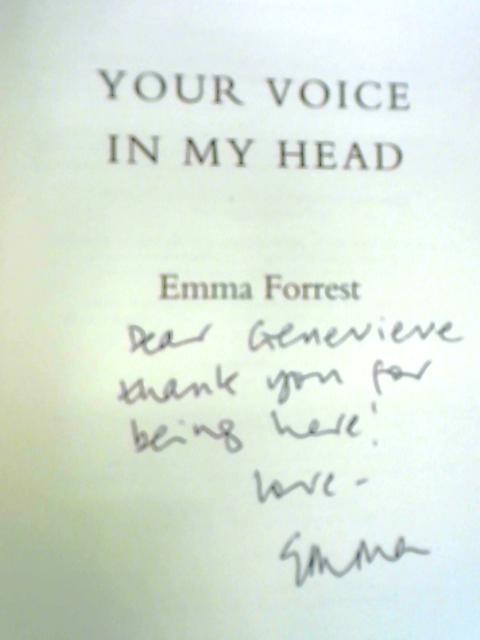 YOUR VOICE
IN MY HEAD
Emma Forrest
Dear Genevieve
thank you for
being here!
love -
Emma